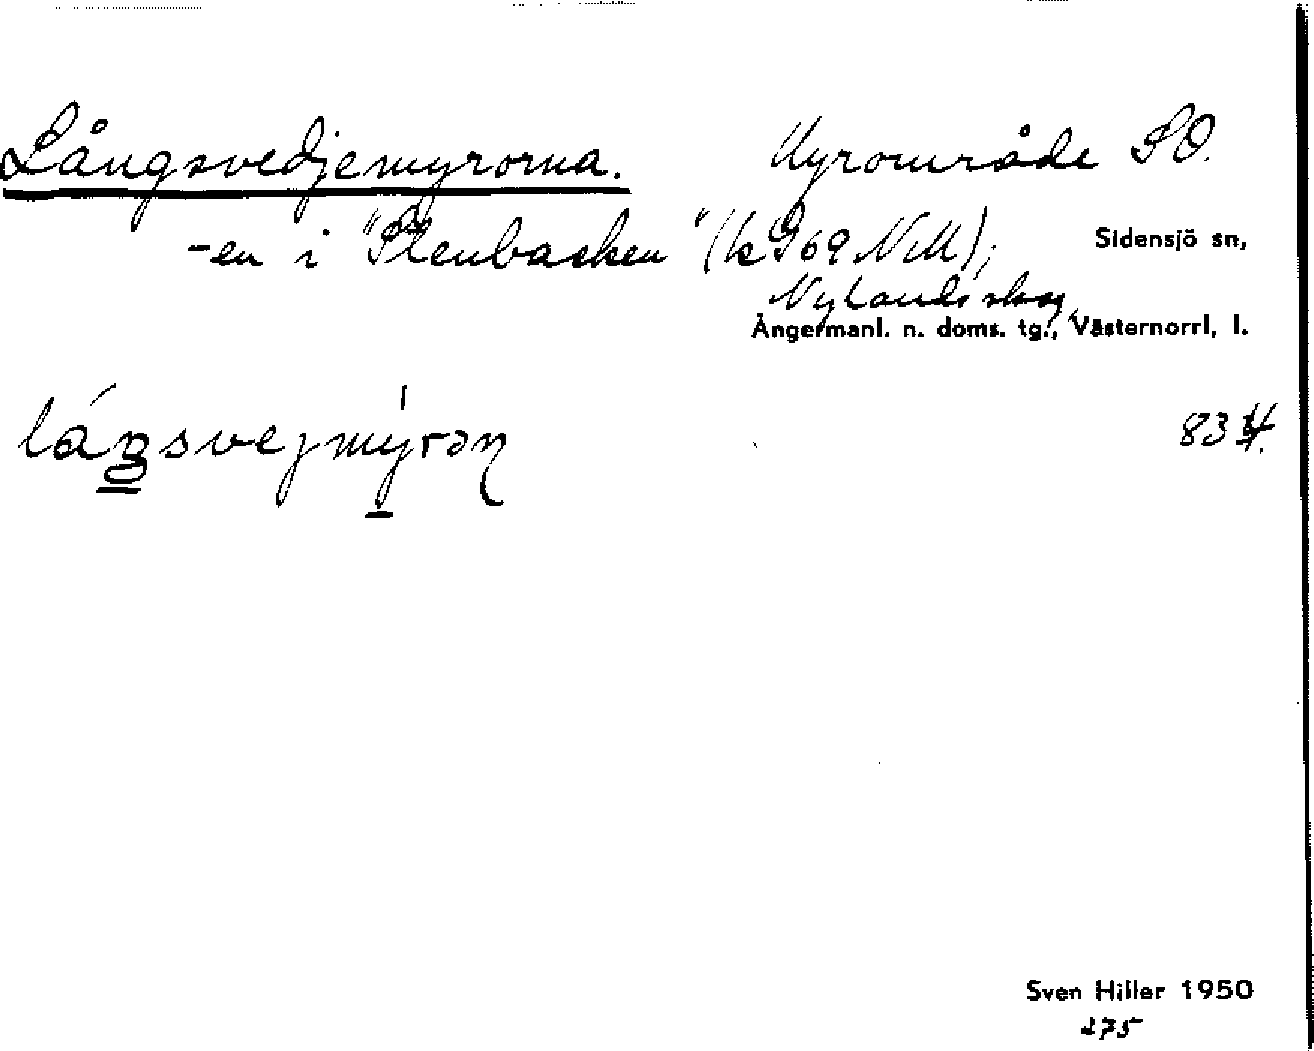 Långsvedjemyrorna. Myrområde SO.
-en i "Stenbacken" (k 969 NM);
Sidensjö sn,
Nylands skog,
Ångermanl. n. doms. tg., Västernorrl, l.
lågsvejmýrəɳ
83
Sven Hiller 1950
275